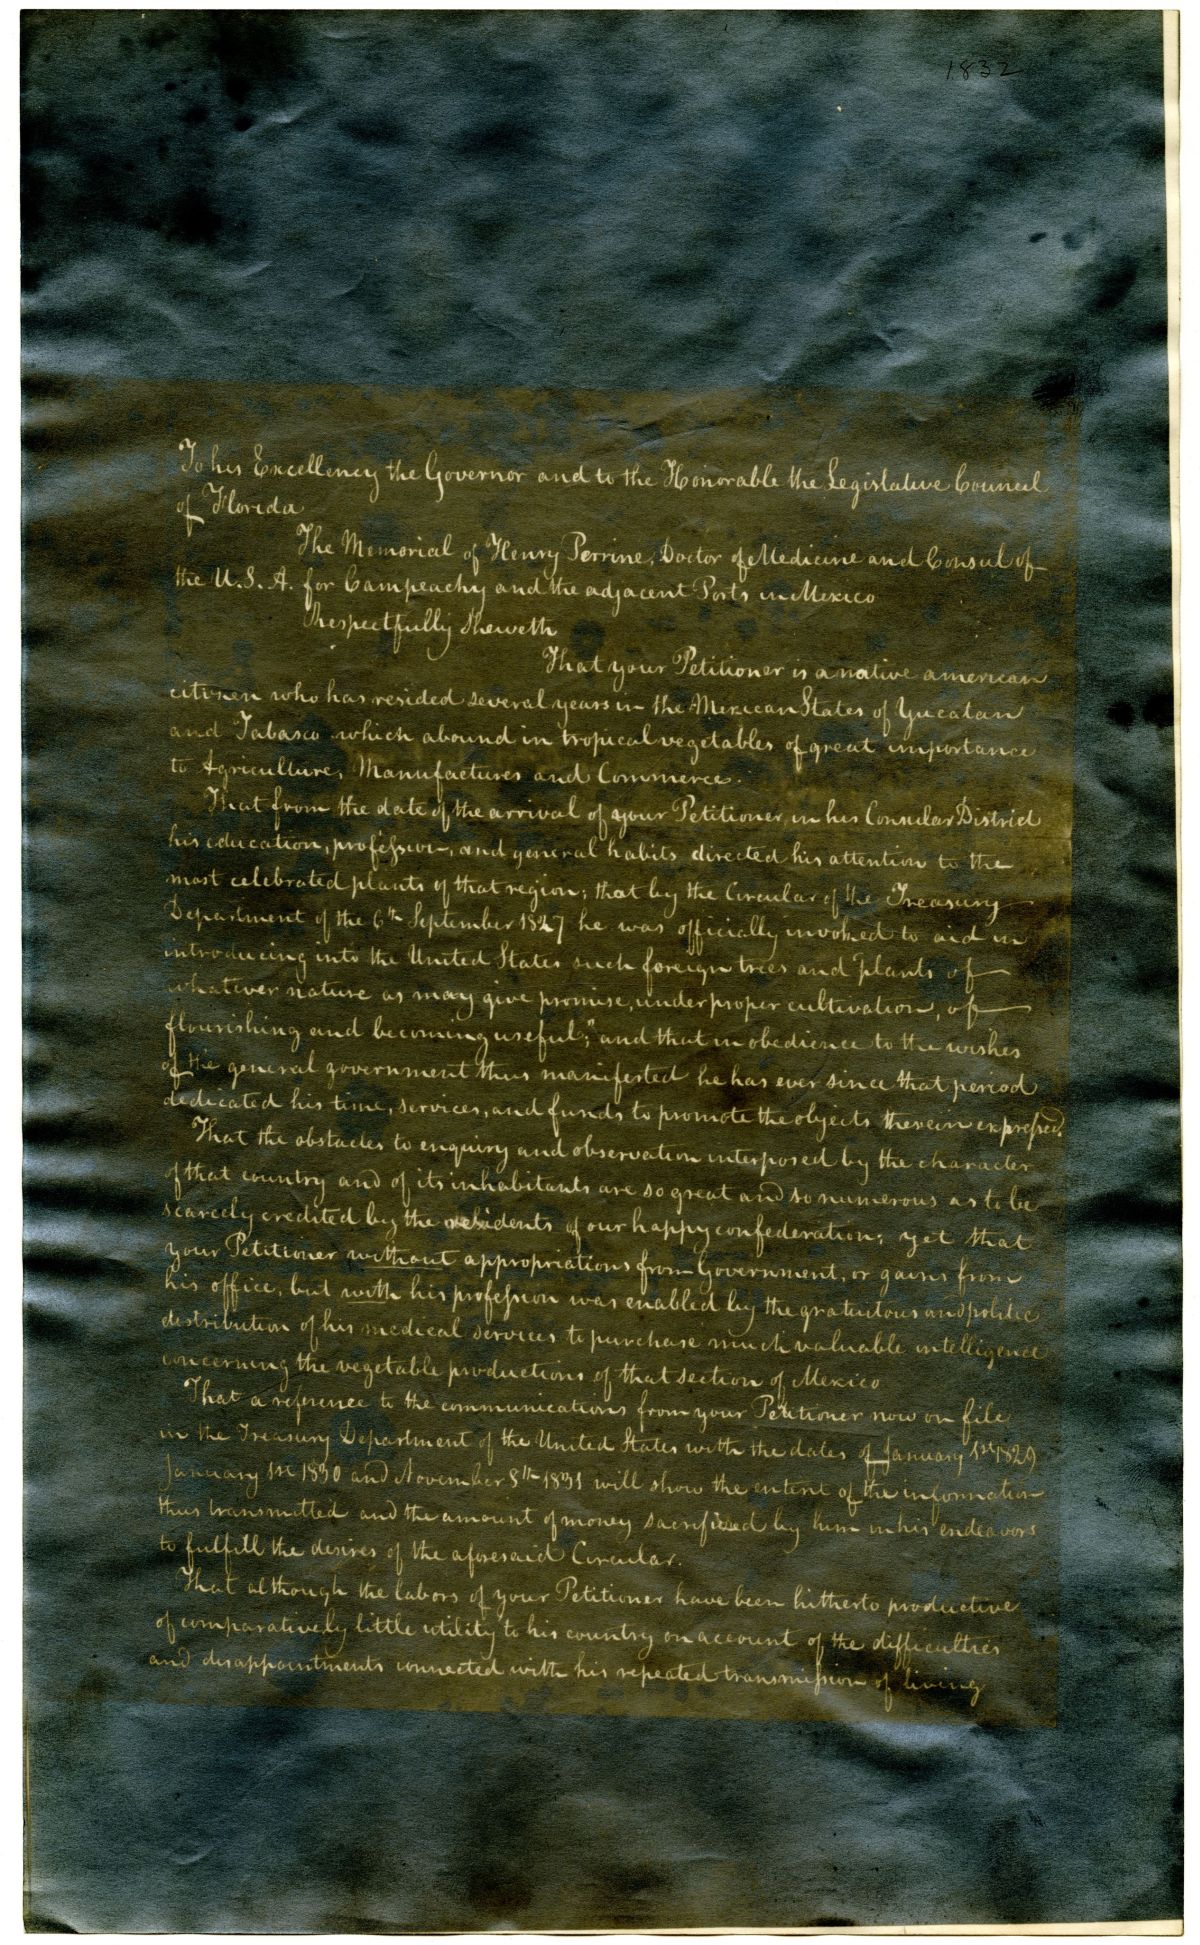 1832
To his Excellency the Governor and to the Honorable the Legislative Council
of Florida
The Memorial of Henry Perrine, Doctor of Medicine and Consul of
the U.S.A. for Campeachy and the adjacent Ports in Mexico
Respectfully Sheweth
That your Petitioner is a native american
citizen who has resided several years in the Mexican States of Yucatan
and Tabasco which abound in tropical vegetables of great importance
to Agriculture, Manufactures and Commerce.
That from the date of the arrival of your Petitioner, in his Consular District
his education, profession, and general habits directed his attention to the
most celebrated plants of that region; that by the Circular of the Treasury
Department of the 6th September 1827 he was officially invoked to aid in
introducing into the United States such foreign trees and plants of
whatever nature as may give promise, under proper cultivation, of
flourishing and becoming useful;" and that in obedience to the wishes
of the general government thus manifested he has ever since that period
dedicated his time, services, and funds to promote the objects therein expressed.
That the obstacles to enquiry and observation interposed by the character
of that country and of its inhabitants are so great and so numerous as to be
scarcely credited by the residents of our happy confederation; yet that
your Petitioner without appropriations from Government, or gains from
his office, but with his profession was enabled by the gratuitous and politic
distribution of his medical services to purchase much valuable intelligence
concerning the vegetable productions of that section of Mexico
That a reference to the communications from your Petitioner now on file
in the Treasury Department of the United States with the dates of January 1st 1829
January 1st 1830 and November 8th 1831 will show the extent of the information
thus transmitted and the amount of money sacrificed by him in his endeavors
to fulfill the desires of the aforesaid Circular.
That although the labors of your Petitioner have been hitherto productive
of comparatively little utility to his country on account of the difficulties
and disappointments connected with his repeated transmission of living